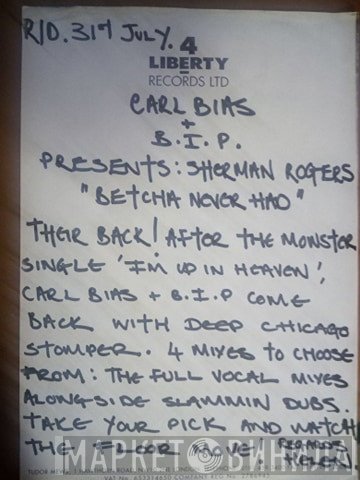 R/D. 31st JULY.
4
LIBERTY
RECORDS LTD
CARL BIAS
+
B.I.P.
PRESENTS: SHERMAN ROGERS
"BETCHA NEVER HAD"
THEIR BACK! AFTER THE MONSTER
SINGLE 'I'M UP IN HEAVEN',
CARL BIAS + B.I.P COME
BACK WITH DEEP CHICAGO
STOMPER. 4 MIXES TO CHOOSE
FROM: THE FULL VOCAL MIXES
ALONGSIDE SLAMMIN DUBS.
TAKE YOUR PICK AND WATCH
THE FLOOR MOVE! REGARDS
HELEN
МАРКЕТ ВИНИЛА
TUDOR MEWS, 1 HAWTHORN ROAD, LONDON